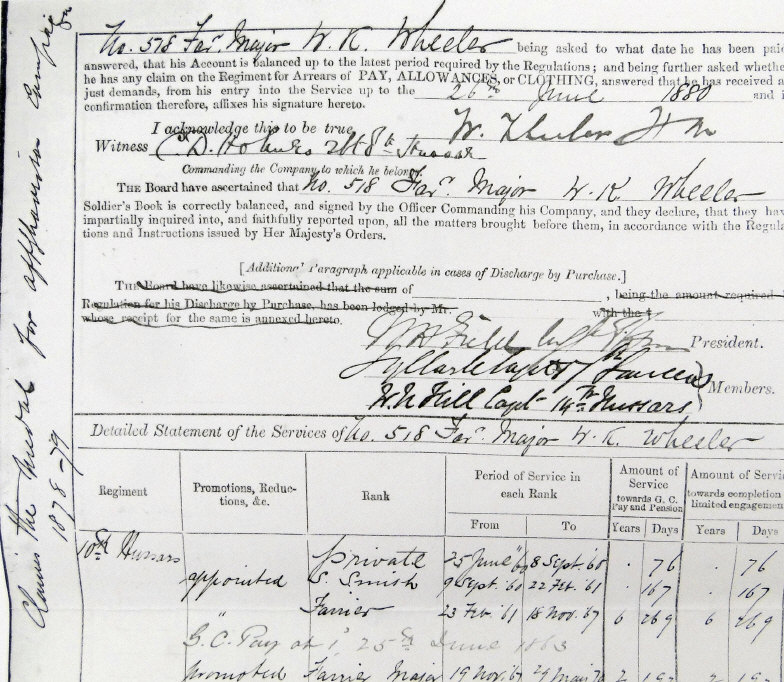 No. 518 Farr. Major W. K. Wheeler being asked to what date he has been paid
answered, that his Account is balanced up to the latest period required by the Regulations; and being further asked whethe
he has any claim on the Regiment for Arrears of PAY, ALLOWANCES, or CLOTHING, answered that he has received a
just demands, from his entry into the Service up to the 26th June 1880 and i
confirmation therefore, affixes his signature hereto.
I acknowledge this to be true W. Wheeler
Witness 8th Hussars
Commanding the Company to which he belongs
THE Board have ascertained that No. 518 Farr. Major W. K. Wheeler
Soldier's Book is correctly balanced, and signed by the Officer Commanding his Company, and they declare, that they hav
impartially inquired into, and faithfully reported upon, all the matters brought before them, in accordance with the Regula
tions and Instructions issued by Her Majesty's Orders.
[Additional Paragraph applicable in cases of Discharge by Purchase.]
THE Board have likewise ascertained that the sum of , being the amount required
Regulation for his Discharge by Purchase, has been lodged by Mr. with the
whose receipt for the same is annexed hereto.
President.
Capt Lancers
Members.
W. N. Hill Capt 14th Hussars
Detailed Statement of the Services of No. 518 Farr. Major W. K. Wheeler
Regiment Promotions, Reductions, &c. Rank Period of Service in each Rank Amount of Service towards G. C. Pay and Pension Amount of Servi towards completion limited engagemen
From To Years Days Years Days
10th Hussars private 25 June 60 8 Sept. 60 . 76 . 76
appointed S. Smith 9 Sept. 60 22 Feb. 61 . 167 . 167
" Farrier 23 Feb. 61 18 Nov. 67 6 269 6 269
G. C. Pay at 1d. 25th June 1863
promoted Farrier Major 19 Nov. 67
Claims the medal for Affghanistan Campaign
1878-79